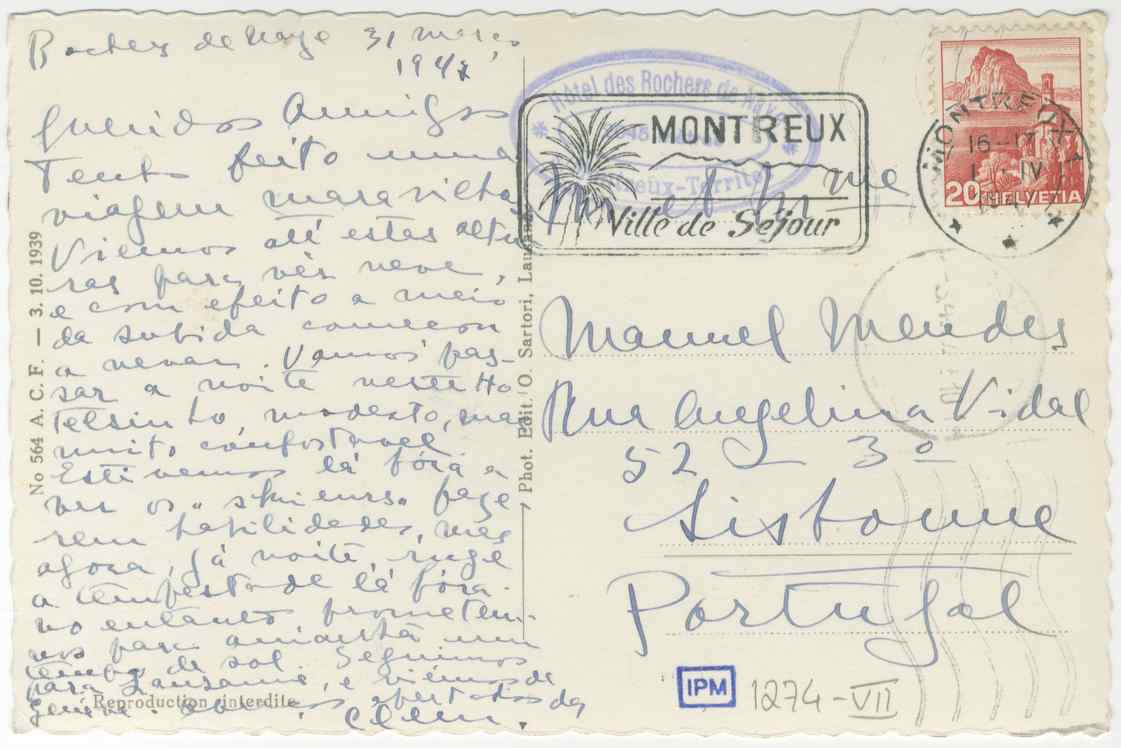 Rochers de Naye 31 março
1947
Queridos Amigos
Tenho feito uma
viagem maravilho
Viemos até estas altu
ras para vêr neve,
e com efeito a meio
da subida começou
a nevar. Vamos pas-
sar a noite neste Ho
telsinho modesto, mas
muito confortavel
Estivemos lá fóra a
ver os "skieurs" faze
rem habilidades, mas
agora, já noite, ruge
a tempestade lá fóra.
no entanto prometem-
nos para amanhã um
tempo de sol. Seguimos
para Lausanne, e viemos de
Genève. apertados da
Clem.
No 564 A. C. F. — 3. 10. 1939
Phot. Edit. O. Sartori, Lausanne
Reproduction interdite
Hôtel des Rochers de Naye
Montreux-Territet
MONTREUX
Ville de Séjour
MONTREUX 1
16-17
1 IV
20 HELVETIA
M. et Mme
Manuel Mendes
Rua Angelina Vidal
52 3º
Lisbonne
Portugal
IPM 1274-VII